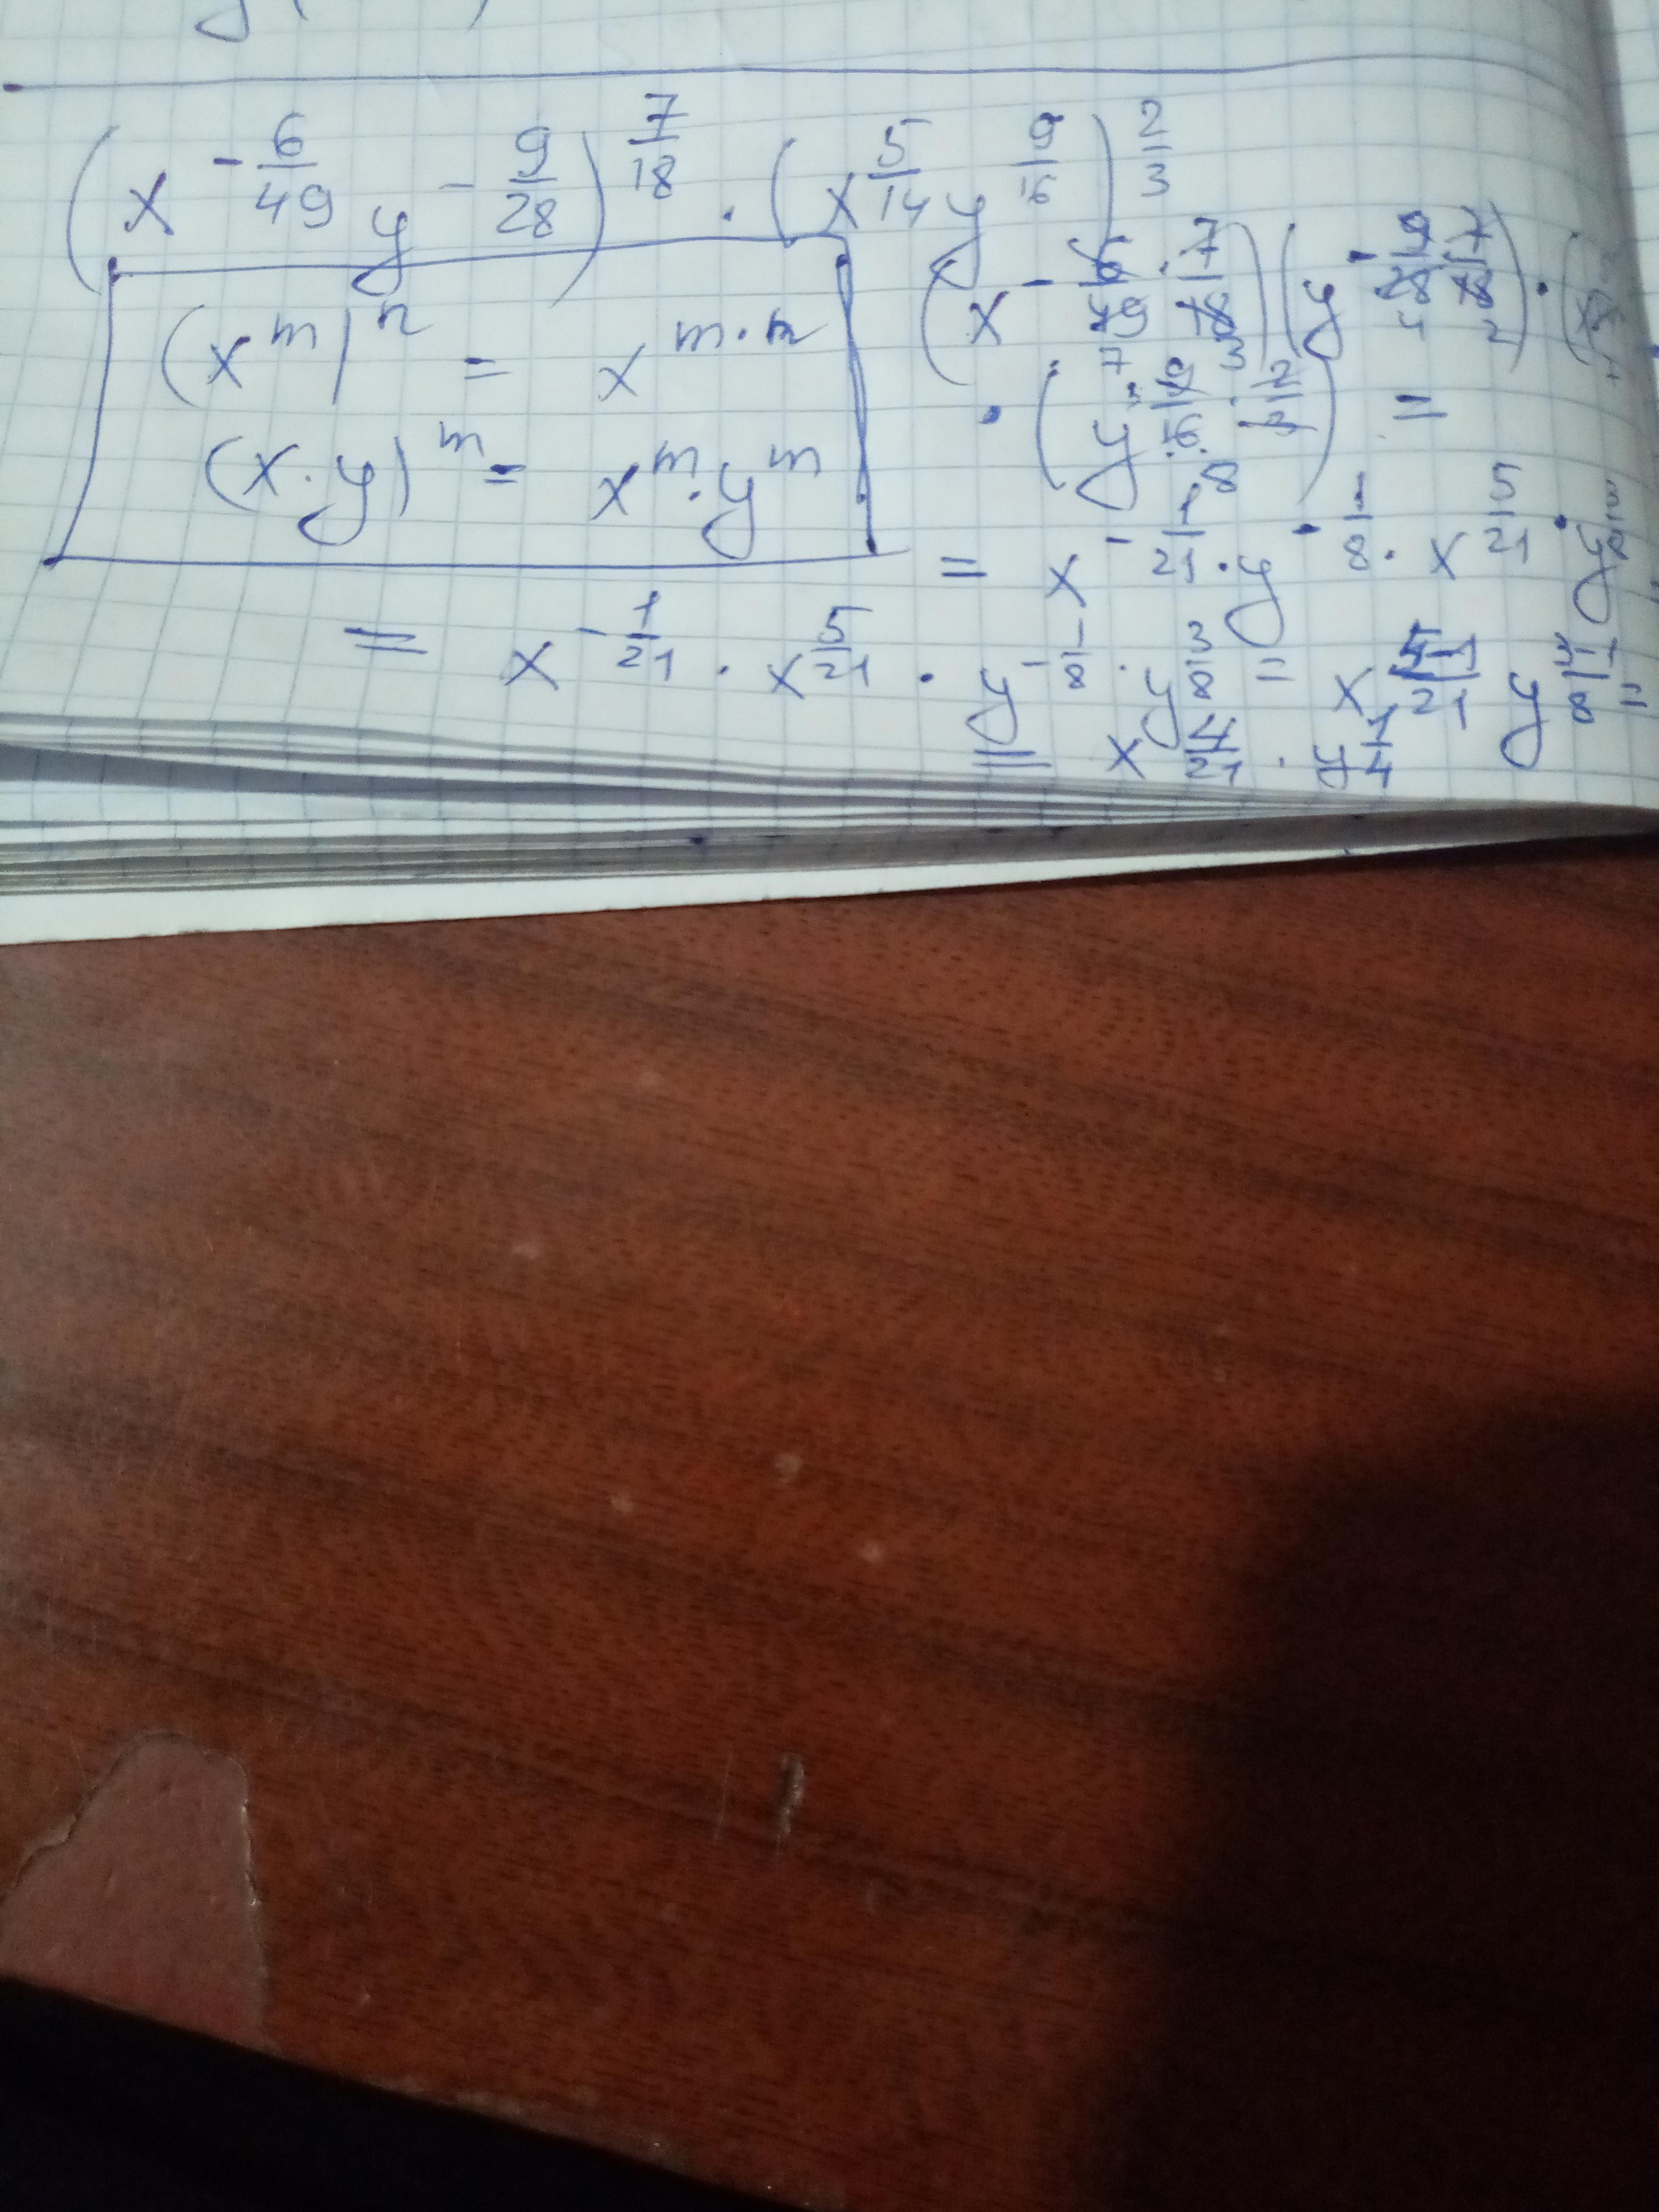 (x^{-6/49} y^{-9/28})^{7/18} · (x^{5/14} y^{9/16})^{2/3}
(x^m)^n = x^{m·n}
(x·y)^m = x^m · y^m
(x^{-6/49 · 7/18}) (y^{-9/28 · 7/18}) ·
7 3 4 2
· (y^{9/16 · 2/3}) =
3 8
= x^{-1/21} · y^{-1/8} · x^{5/21} · y^{3/8}
= x^{-1/21} · x^{5/21} · y^{-1/8} · y^{3/8} = x^{(5-1)/21} y^{(3-1)/8} =
= x^{4/21} · y^{1/4}